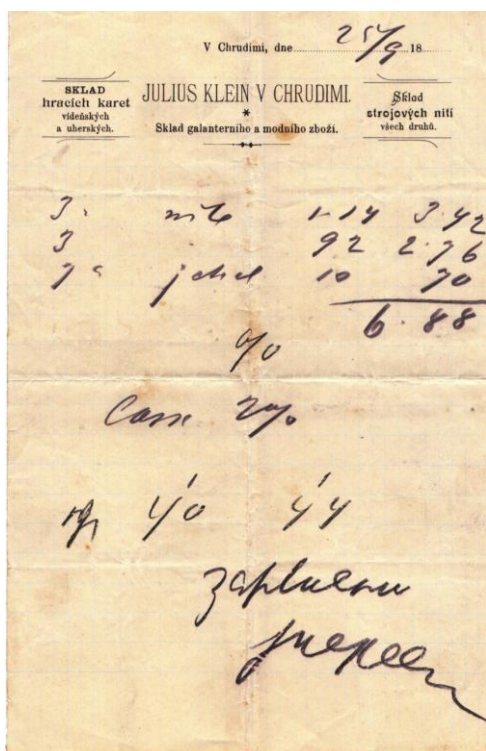 V Chrudimi, dne 25/9 18
SKLAD
hracích karet
vídeňských
a uherských.
JULIUS KLEIN V CHRUDIMI.
*
Sklad galanterního a modního zboží.
Sklad
strojových nití
všech druhů.
3. nitě 1.14 3.42
3 92 2.76
7 jehel 10 70
6.88
%
Cassa 2%
zaplaceno